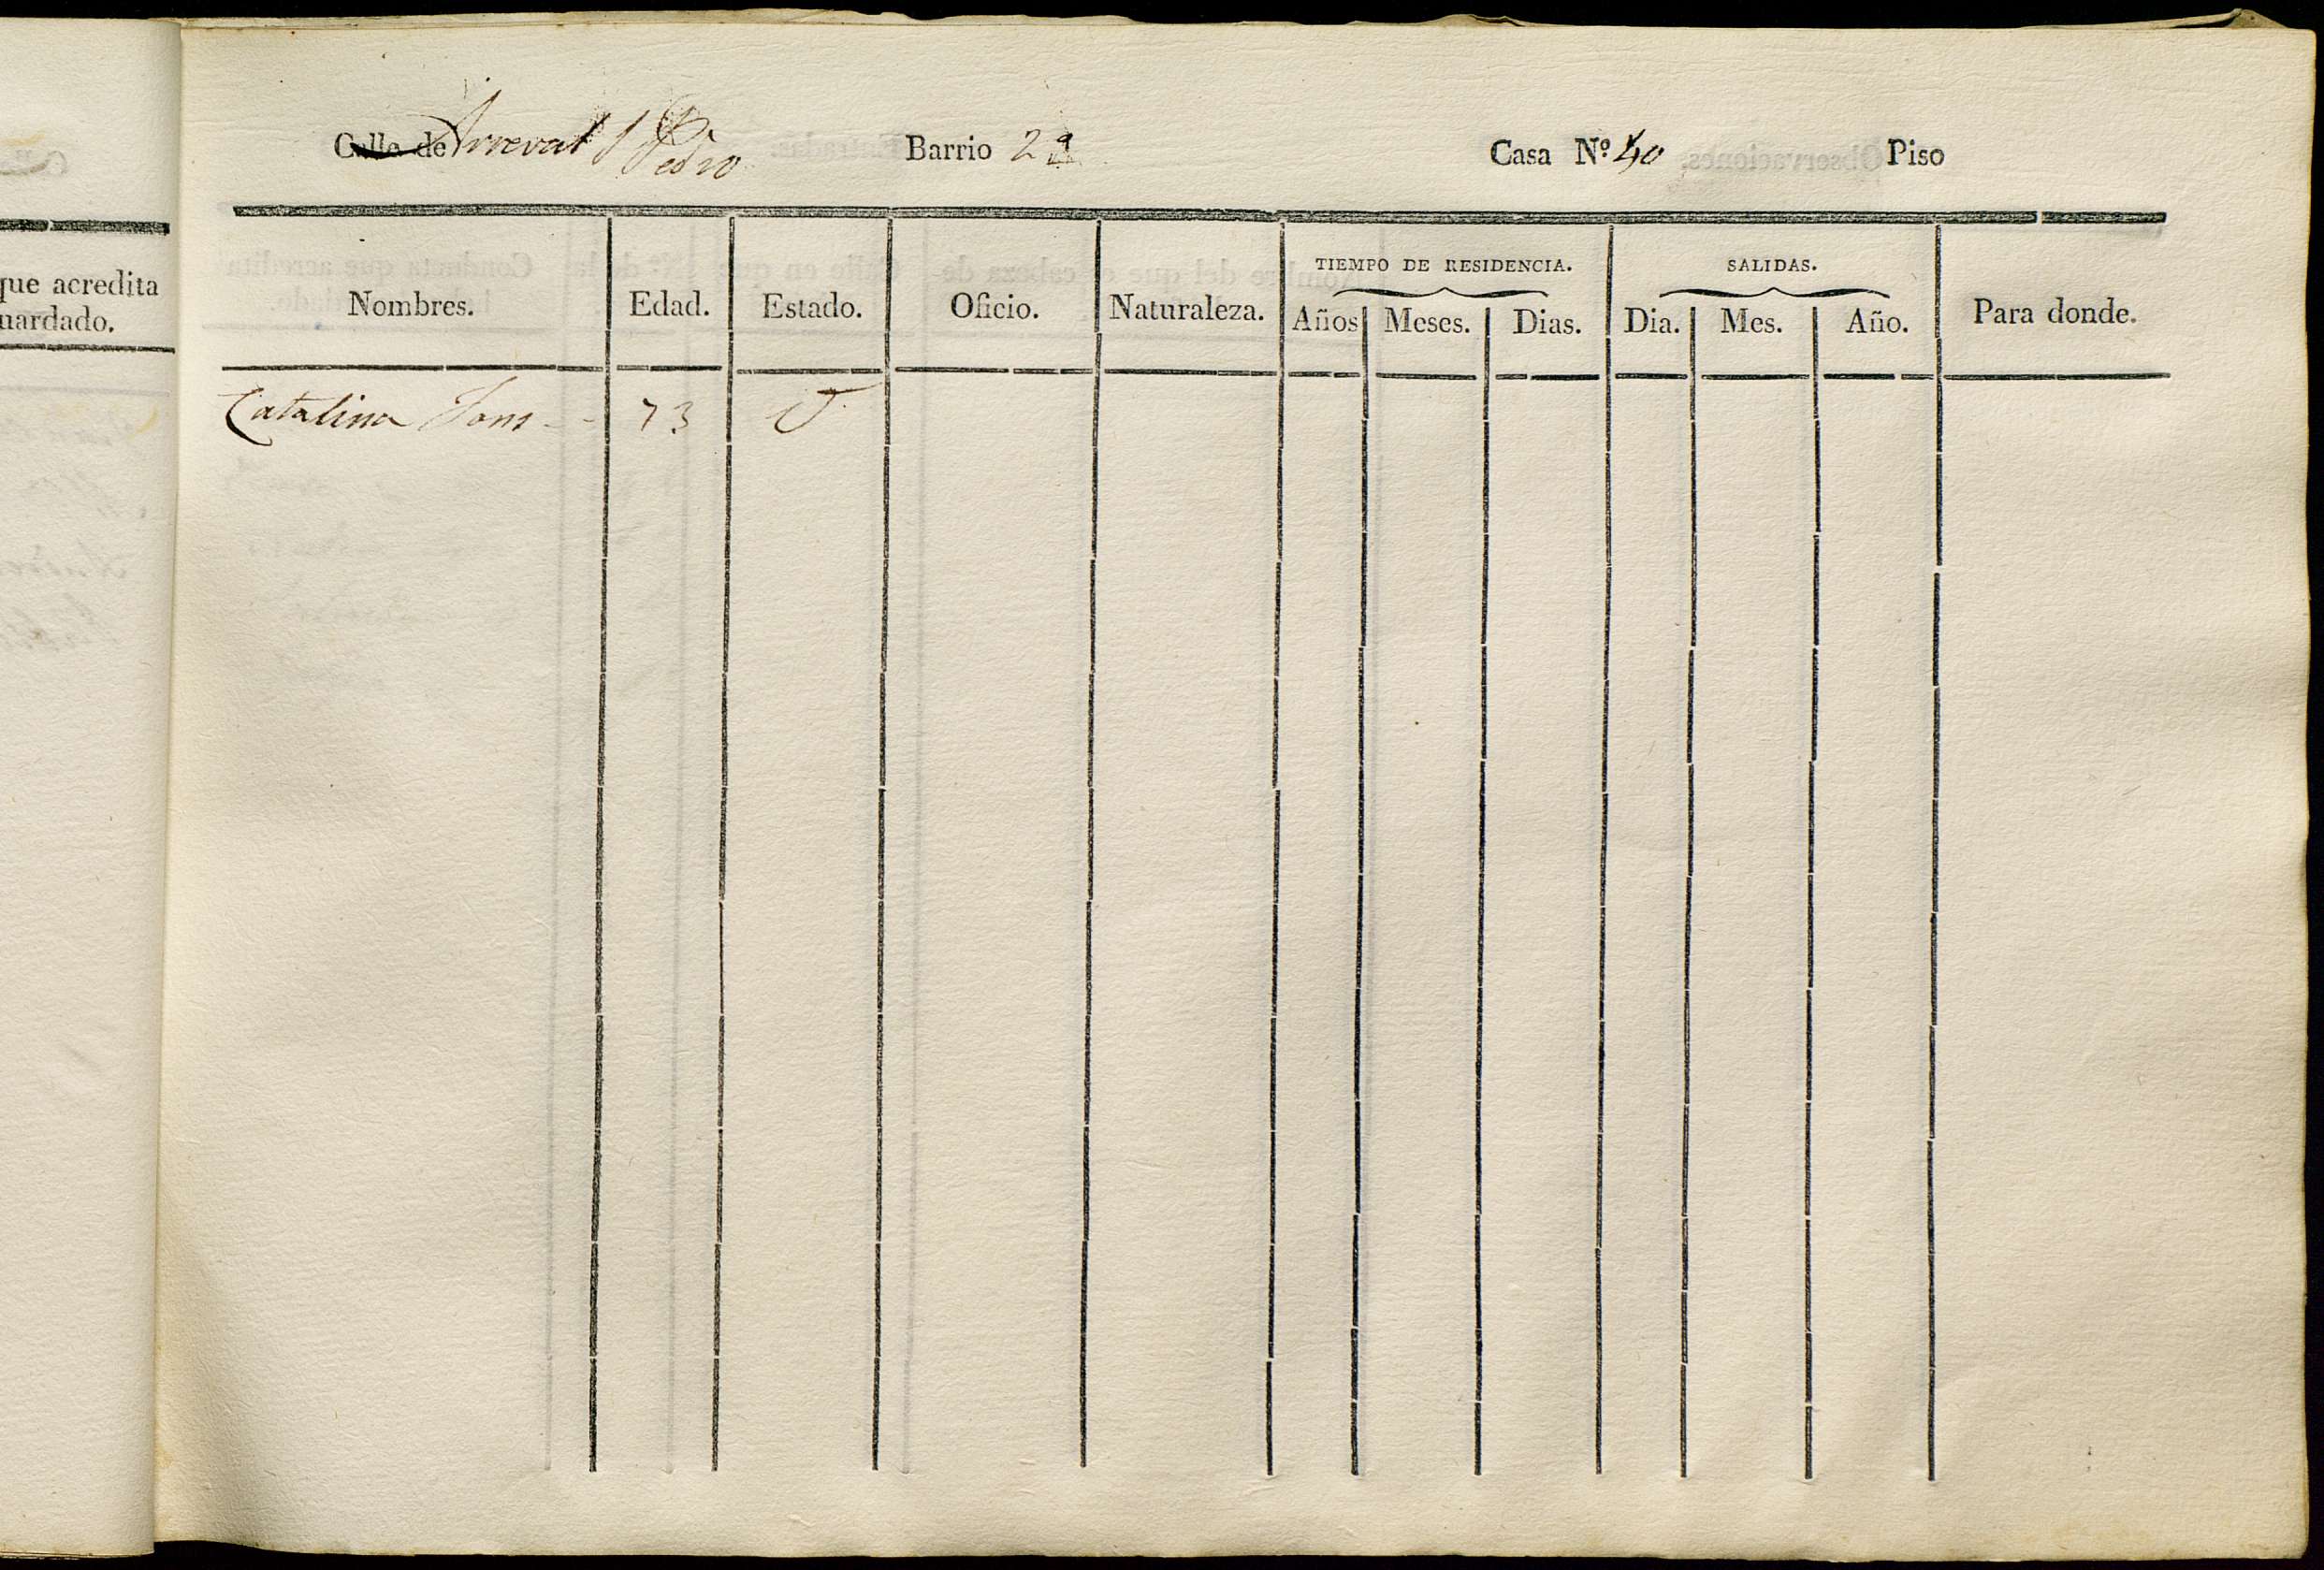 que acredita
nardado.
Calle de Arreval S Pedro Barrio 2 Casa N.º 40 Piso
Nombres. Edad. Estado. Oficio. Naturaleza. TIEMPO DE RESIDENCIA. Años Meses. Dias. SALIDAS. Dia. Mes. Año. Para donde.
Catalina Sans - 73 V.